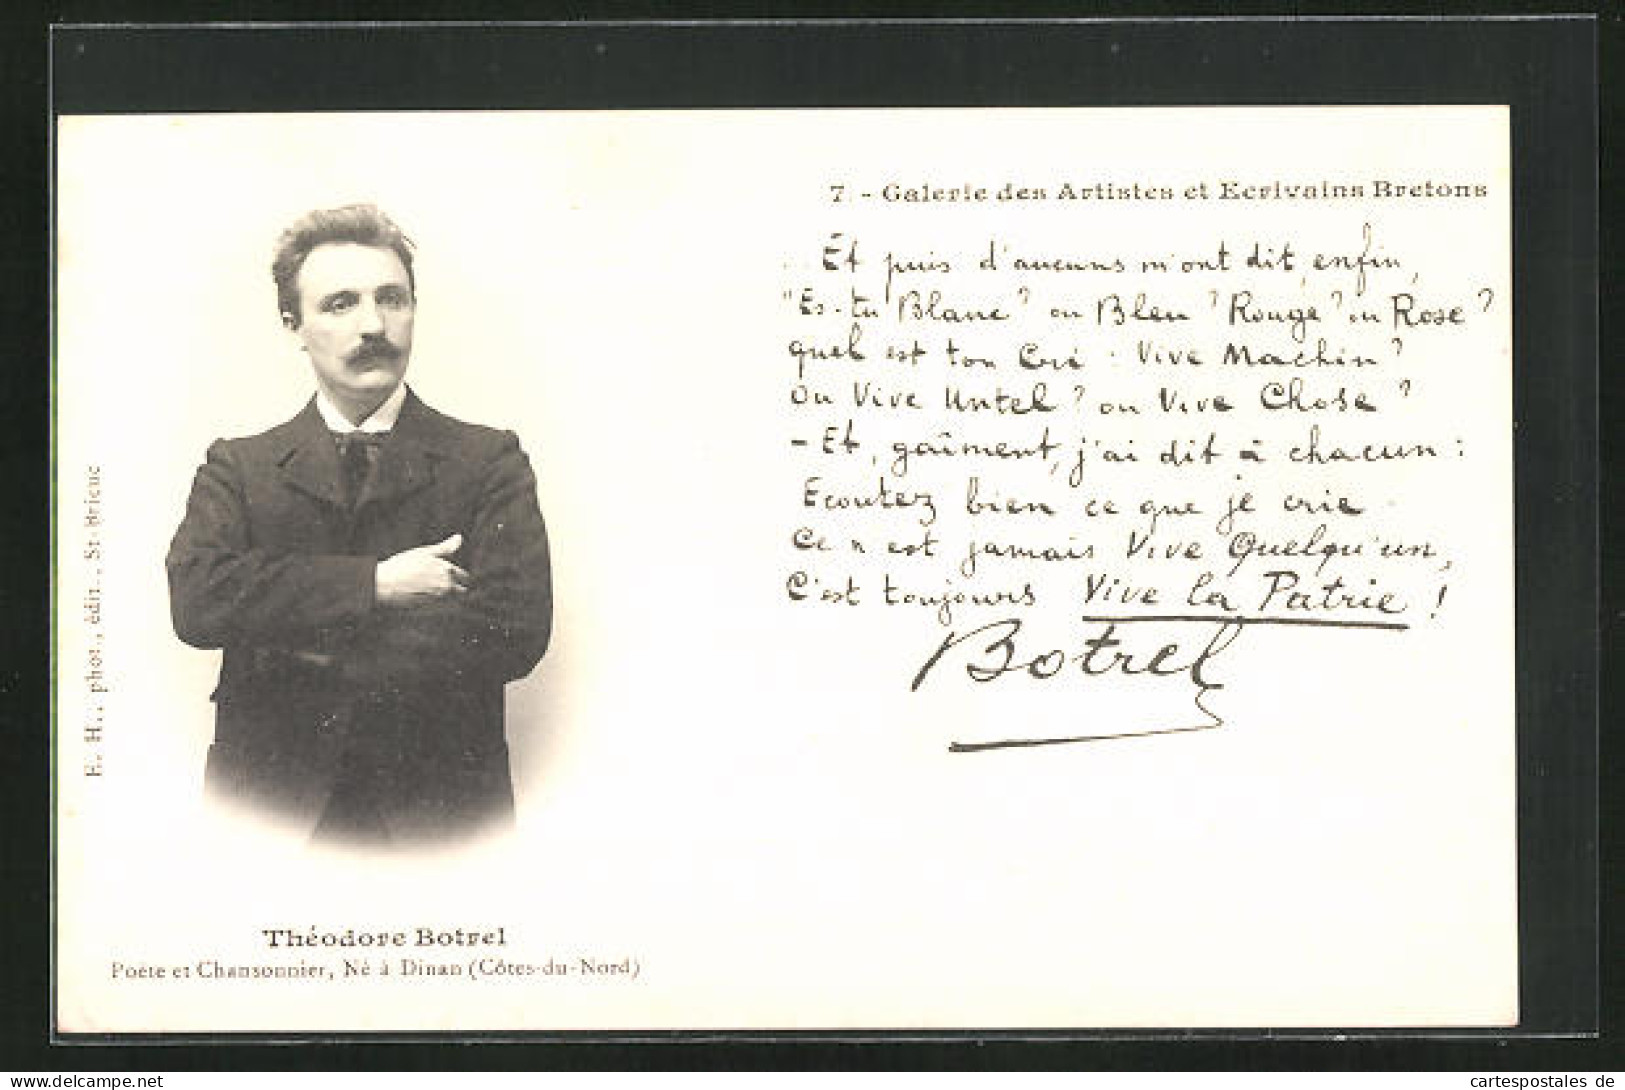 7. - Galerie des Artistes et Ecrivains Bretons
.. Et puis d'aucuns m'ont dit, enfin,
"Es-tu Blanc? ou Bleu? Rouge? ou Rose?
quel est ton Cri : Vive Machin?
ou Vive Untel? ou Vive Chose?
- Et, gaîment, j'ai dit à chacun :
Ecoutez bien ce que je crie
Ce n'est jamais Vive Quelqu'un,
C'est toujours Vive la Patrie !
Botrel
E. H., phot., édit., St-Brieuc
Théodore Botrel
Poète et Chansonnier, Né à Dinan (Côtes-du-Nord)
cartespostales de